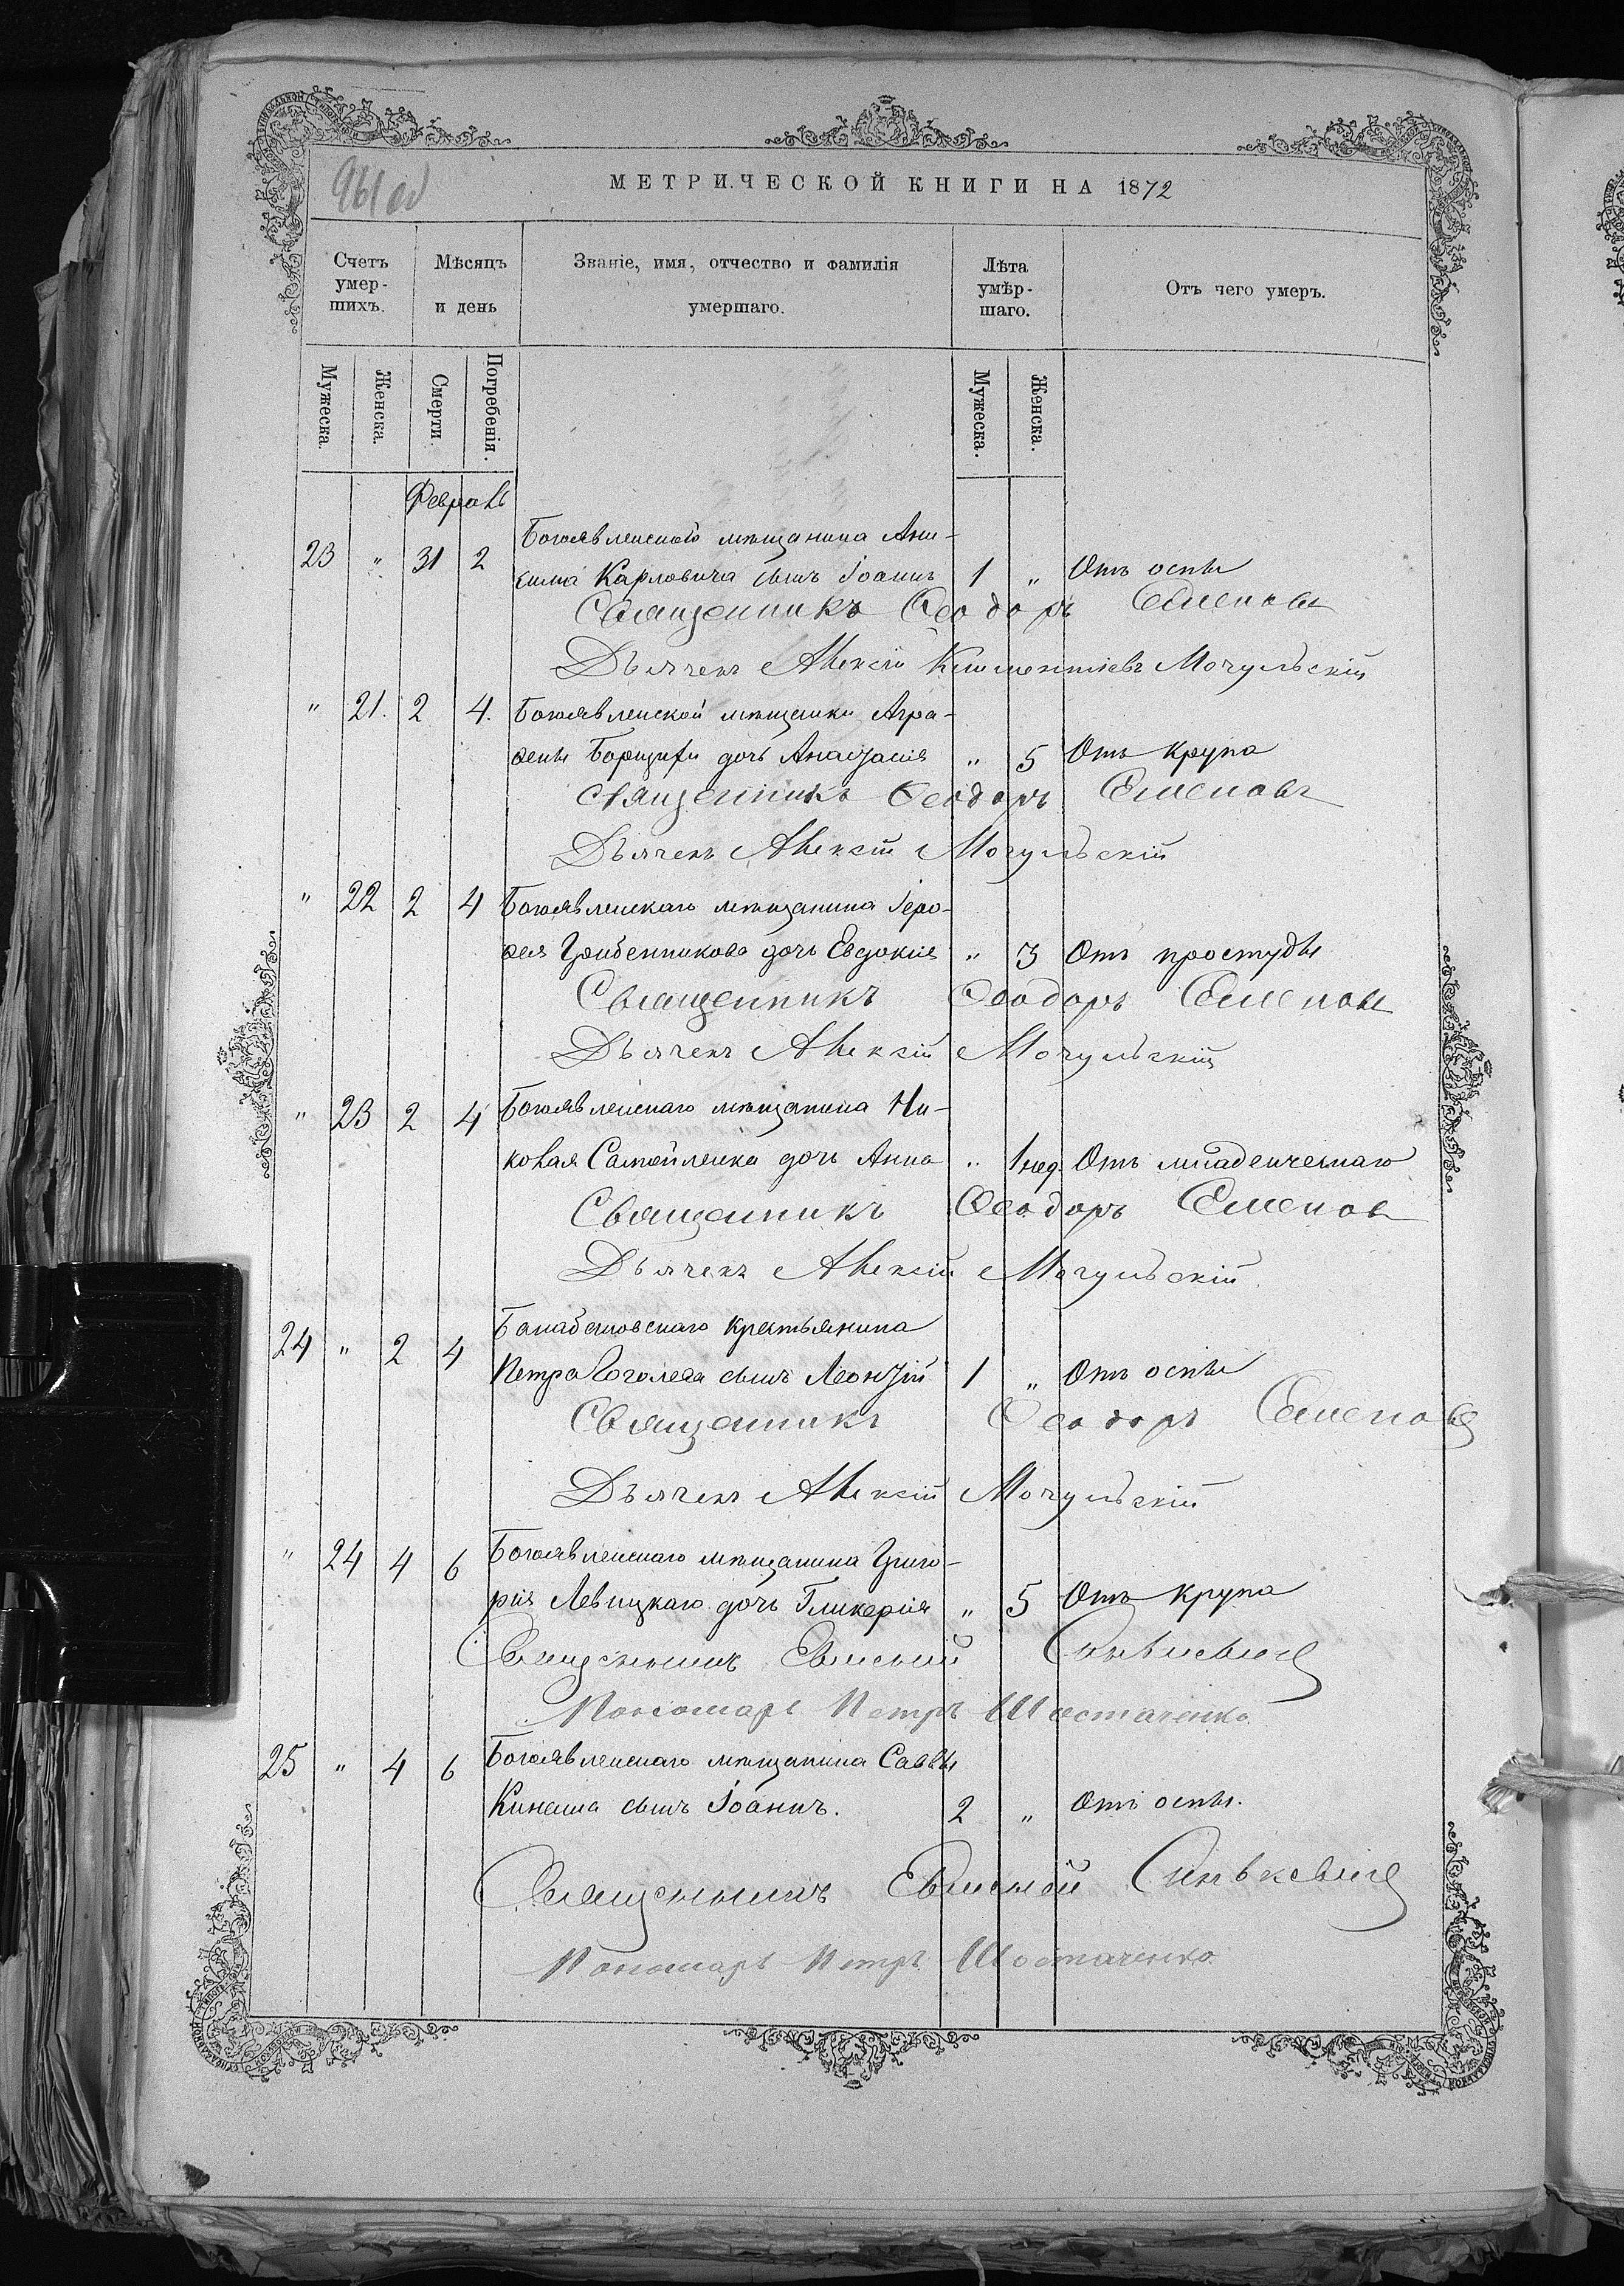 961 об
МЕТРИЧЕСКОЙ КНИГИ НА 1872
Счетъ умер-шихъ.
Мѣсяцъ и день
Званіе, имя, отчество и фамилія умершаго.
Лѣта умѣр-шаго.
Отъ чего умеръ.
Мужеска.
Женска.
Смерти.
Погребенія.
Мужеска.
Женска.
Февраль
Богоявленского мѣщанина Ани-
23 " 31 2 сима Карловича сынъ Іоаннъ 1 " Отъ оспы
Священникъ Ѳеодоръ Семеновъ
Дьячекъ Алексій Климентіевъ Мочульскій
" 21. 2 4. Богоявленской мѣщанки Агра-
фены Борщихи дочь Анастасія " 5 Отъ крупа
Священникъ Ѳеодоръ Семеновъ
Дьячекъ Алексій Мочульскій
" 22 2 4 Богоявленскаго мѣщанина Іеро-
фея Грибенникова дочь Евдокія " 3 Отъ простуды
Священникъ Ѳеодоръ Семеновъ
Дьячекъ Алексій Мочульскій
" 23 2 4 Богоявленскаго мѣщанина Ни-
колая Самойленка дочь Анна " 1 нед. Отъ младенческаго
Священникъ Ѳеодоръ Семеновъ
Дьячекъ Алексій Мочульскій
24 " 2 4 Балабановскаго крестьянина
Петра Гоголева сынъ Леонтій 1 " Отъ оспы
Священникъ Ѳеодоръ Семеновъ
Дьячекъ Алексій Мочульскій
" 24 4 6 Богоявленскаго мѣщанина Григо-
рія Левицкаго дочь Гликерія " 5 Отъ крупа
Священникъ Евмений Синькевичъ
Пономарь Петръ Шостаченко
25 " 4 6 Богоявленскаго мѣщанина Саввы
Кинаша сынъ Іоаннъ. 2 " Отъ оспы.
Священникъ Евмений Синькевичъ
Пономарь Петръ Шостаченко